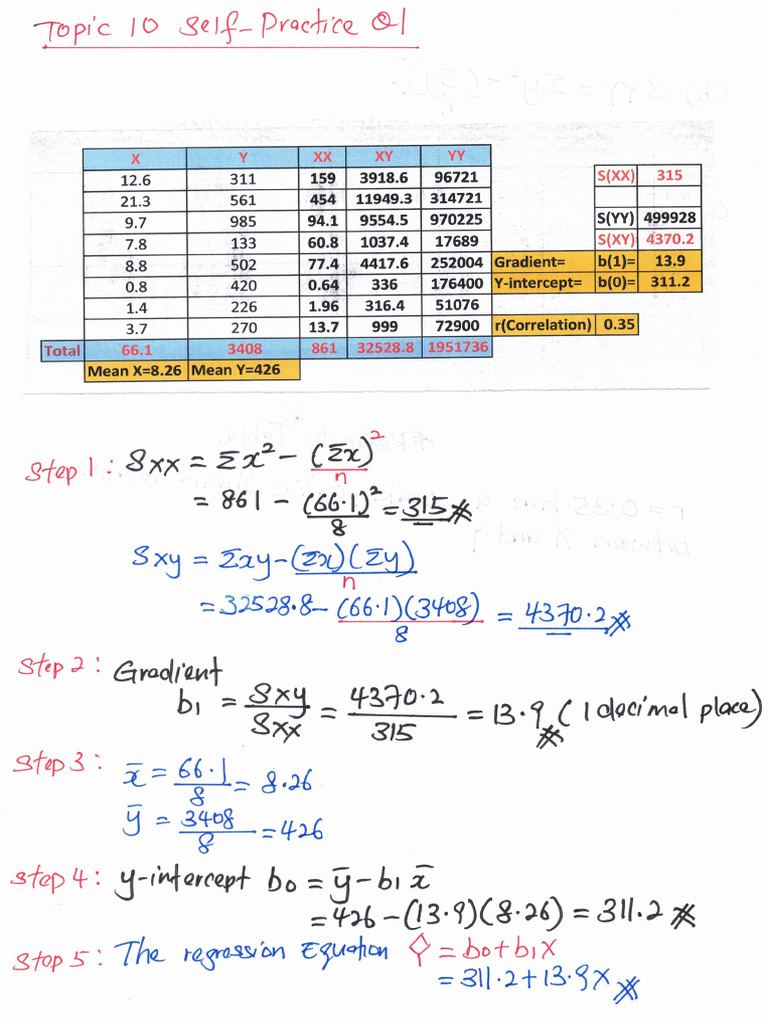 Topic 10 Self-Practice Q1
X Y XX XY YY
12.6 311 159 3918.6 96721 S(XX) 315
21.3 561 454 11949.3 314721
9.7 985 94.1 9554.5 970225 S(YY) 499928
7.8 133 60.8 1037.4 17689 S(XY) 4370.2
8.8 502 77.4 4417.6 252004 Gradient= b(1)= 13.9
0.8 420 0.64 336 176400 Y-intercept= b(0)= 311.2
1.4 226 1.96 316.4 51076
3.7 270 13.7 999 72900 r(Correlation) 0.35
Total 66.1 3408 861 32528.8 1951736
Mean X=8.26 Mean Y=426
Step 1: Sxx = Σx² - (Σx)²/n
= 861 - (66.1)²/8 = 315
Sxy = Σxy - (Σx)(Σy)/n
= 32528.8 - (66.1)(3408)/8 = 4370.2
Step 2: Gradient
b₁ = Sxy/Sxx = 4370.2/315 = 13.9 (1 decimal place)
Step 3: x̄ = 66.1/8 = 8.26
ȳ = 3408/8 = 426
Step 4: y-intercept b₀ = ȳ - b₁x̄
= 426 - (13.9)(8.26) = 311.2
Step 5: The regression Equation Ŷ = b₀+b₁X
= 311.2 + 13.9X